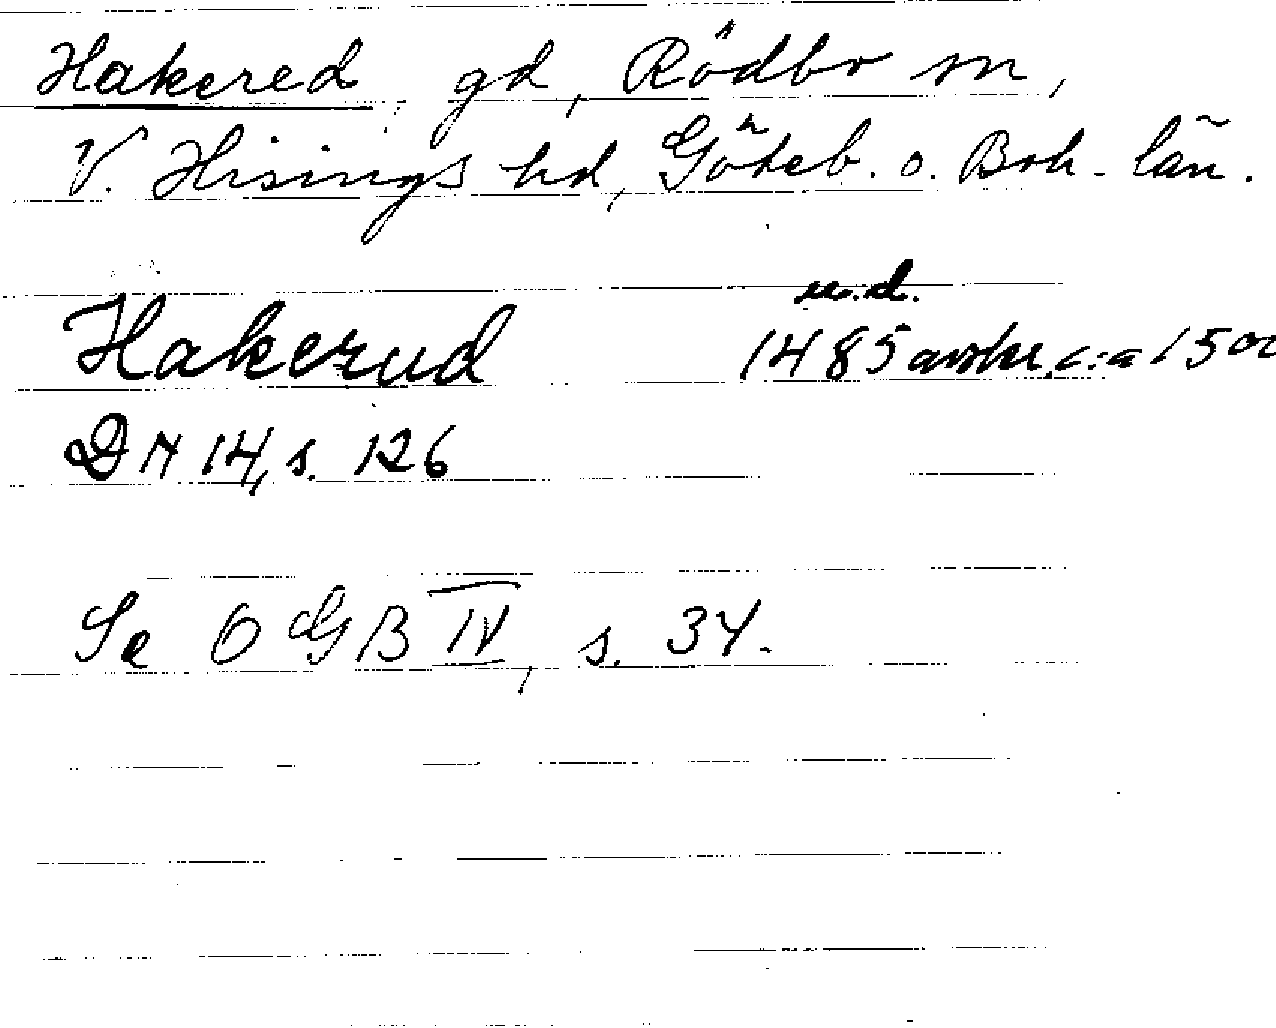 Hakered gd, Rödbo sn,
V. Hisings hd, Göteb. o. Boh. län.
u.d.
Hakerud 1485 avskr. c:a 1500
DN 14, s. 126
Se OGB IV, s. 34.